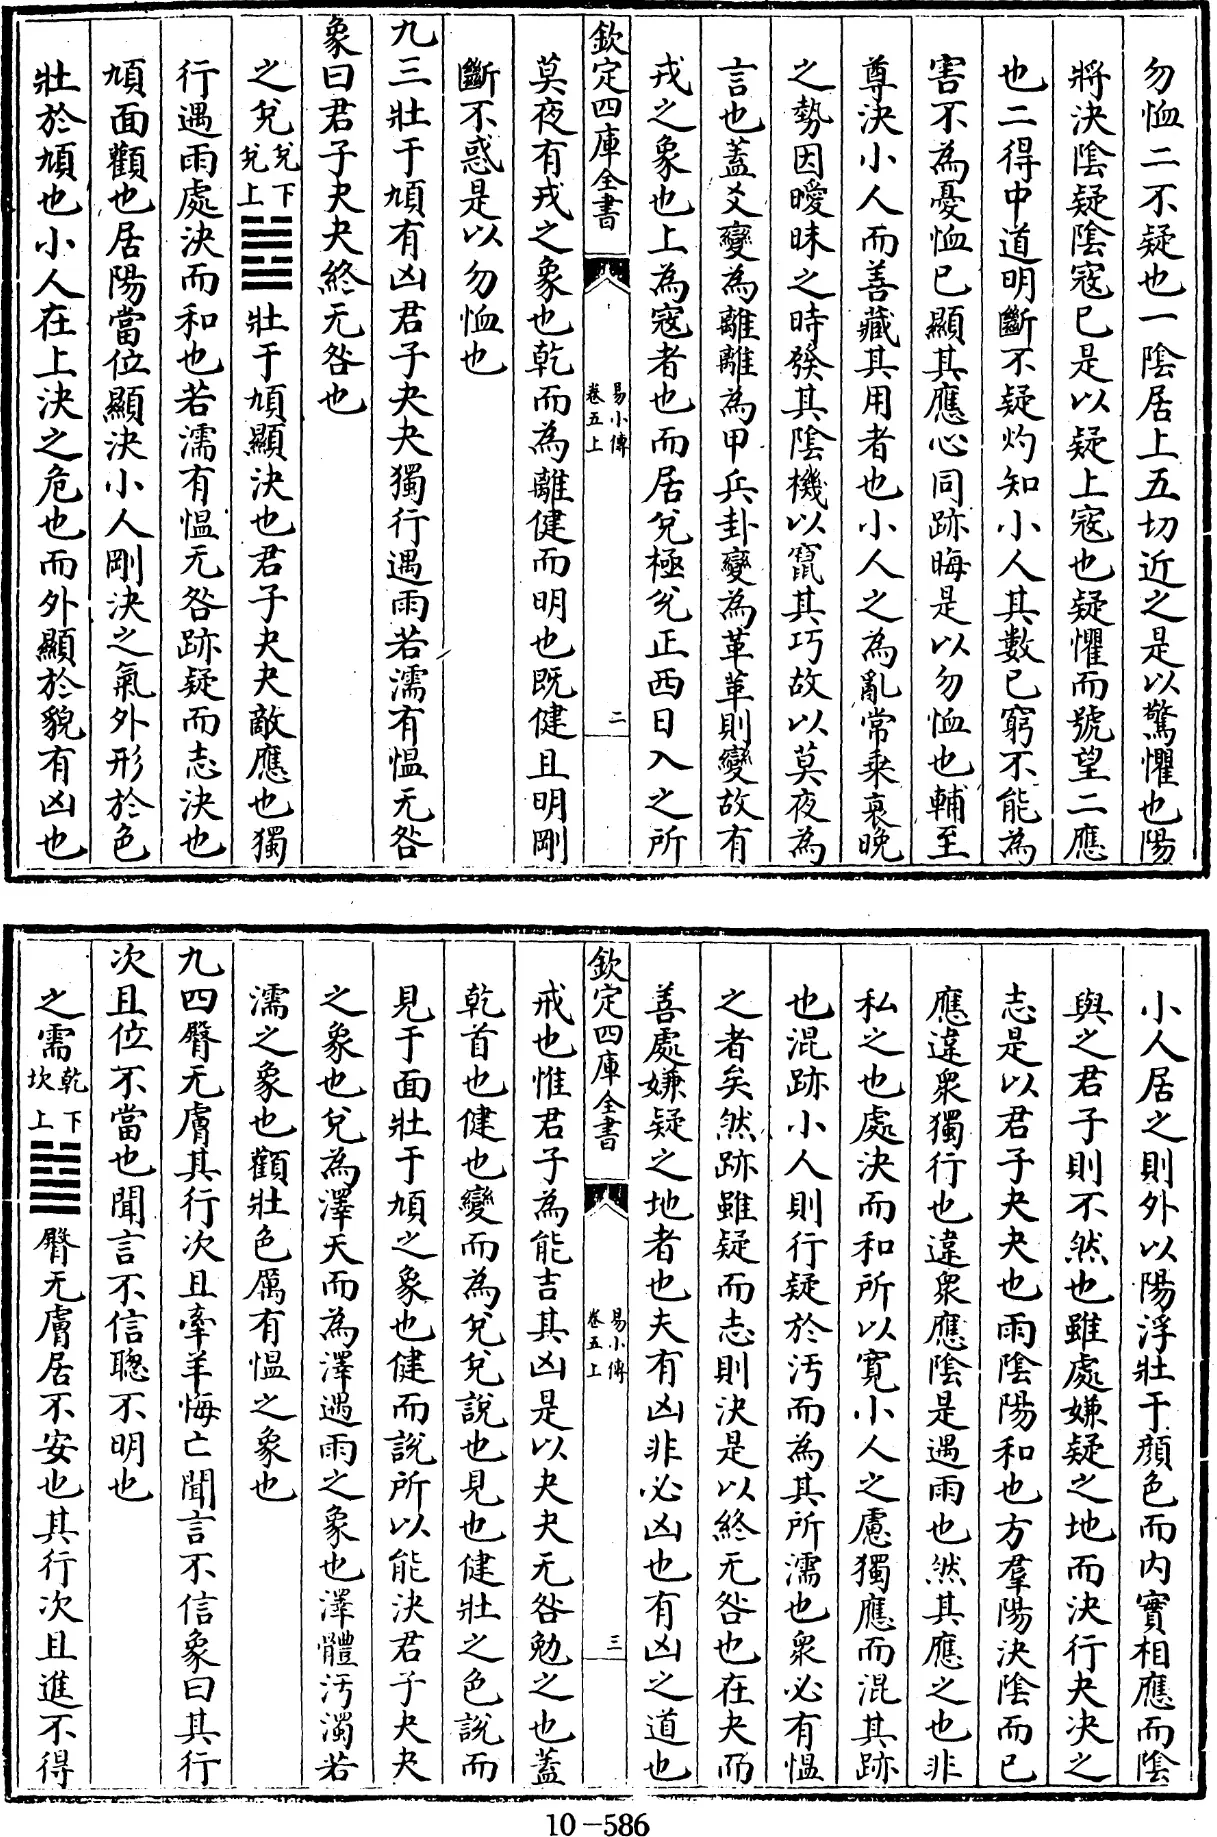 勿恤二不疑也一陰居上五切近之是以驚懼也陽
將決陰疑陰寇已是以疑上寇也疑懼而號望二應
也二得中道明斷不疑灼知小人其數已窮不能為
害不為憂恤已顯其應心同跡晦是以勿恤也輔至
尊決小人而善藏其用者也小人之為亂常乘衰晚
之勢因曖昧之時發其陰機以竄其巧故以莫夜為
言也蓋爻變為離離為甲兵卦變為革革則變故有
戎之象也上為寇者也而居兌極兌正西日入之所
欽定四庫全書 易小傳 卷五上 二
莫夜有戎之象也乾而為離健而明也既健且明剛
斷不惑是以勿恤也
九三壯于頄有凶君子夬夬獨行遇雨若濡有慍无咎
象曰君子夬夬終无咎也
之兌兌下兌上䷹壯于頄顯決也君子夬夬敵應也獨
行遇雨處決而和也若濡有慍无咎跡疑而志決也
頄面顴也居陽當位顯決小人剛決之氣外形於色
壯於頄也小人在上決之危也而外顯於貌有凶也
小人居之則外以陽浮壯于顏色而内實相應而陰
與之君子則不然也雖處嫌疑之地而決行夬決之
志是以君子夬夬也雨陰陽和也方羣陽決陰而已
應違衆獨行也違衆應陰是遇雨也然其應之也非
私之也處決而和所以寬小人之慮獨應而混其跡
也混跡小人則行疑於汚而為其所濡也衆必有慍
之者矣然跡雖疑而志則決是以終无咎也在夬而
善處嫌疑之地者也夫有凶非必凶也有凶之道也
欽定四庫全書 易小傳 卷五上 三
戒也惟君子為能吉其凶是以夬夬无咎勉之也蓋
乾首也健也變而為兌兌說也見也健壯之色說而
見于面壯于頄之象也健而說所以能決君子夬夬
之象也兌為澤天而為澤遇雨之象也澤體汚濁若
濡之象也顴壯色厲有慍之象也
九四臀无膚其行次且牽羊悔亡聞言不信象曰其行
次且位不當也聞言不信聰不明也
之需乾下坎上䷄臀无膚居不安也其行次且進不得
10-586